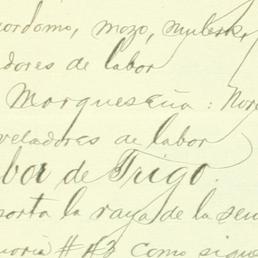 ordomo, mozo, muleske
dores de labor
Marqueseña: Nor
veladores de labor
bor de Trigo.
porta la raya de la sem
moria #43 como sigue